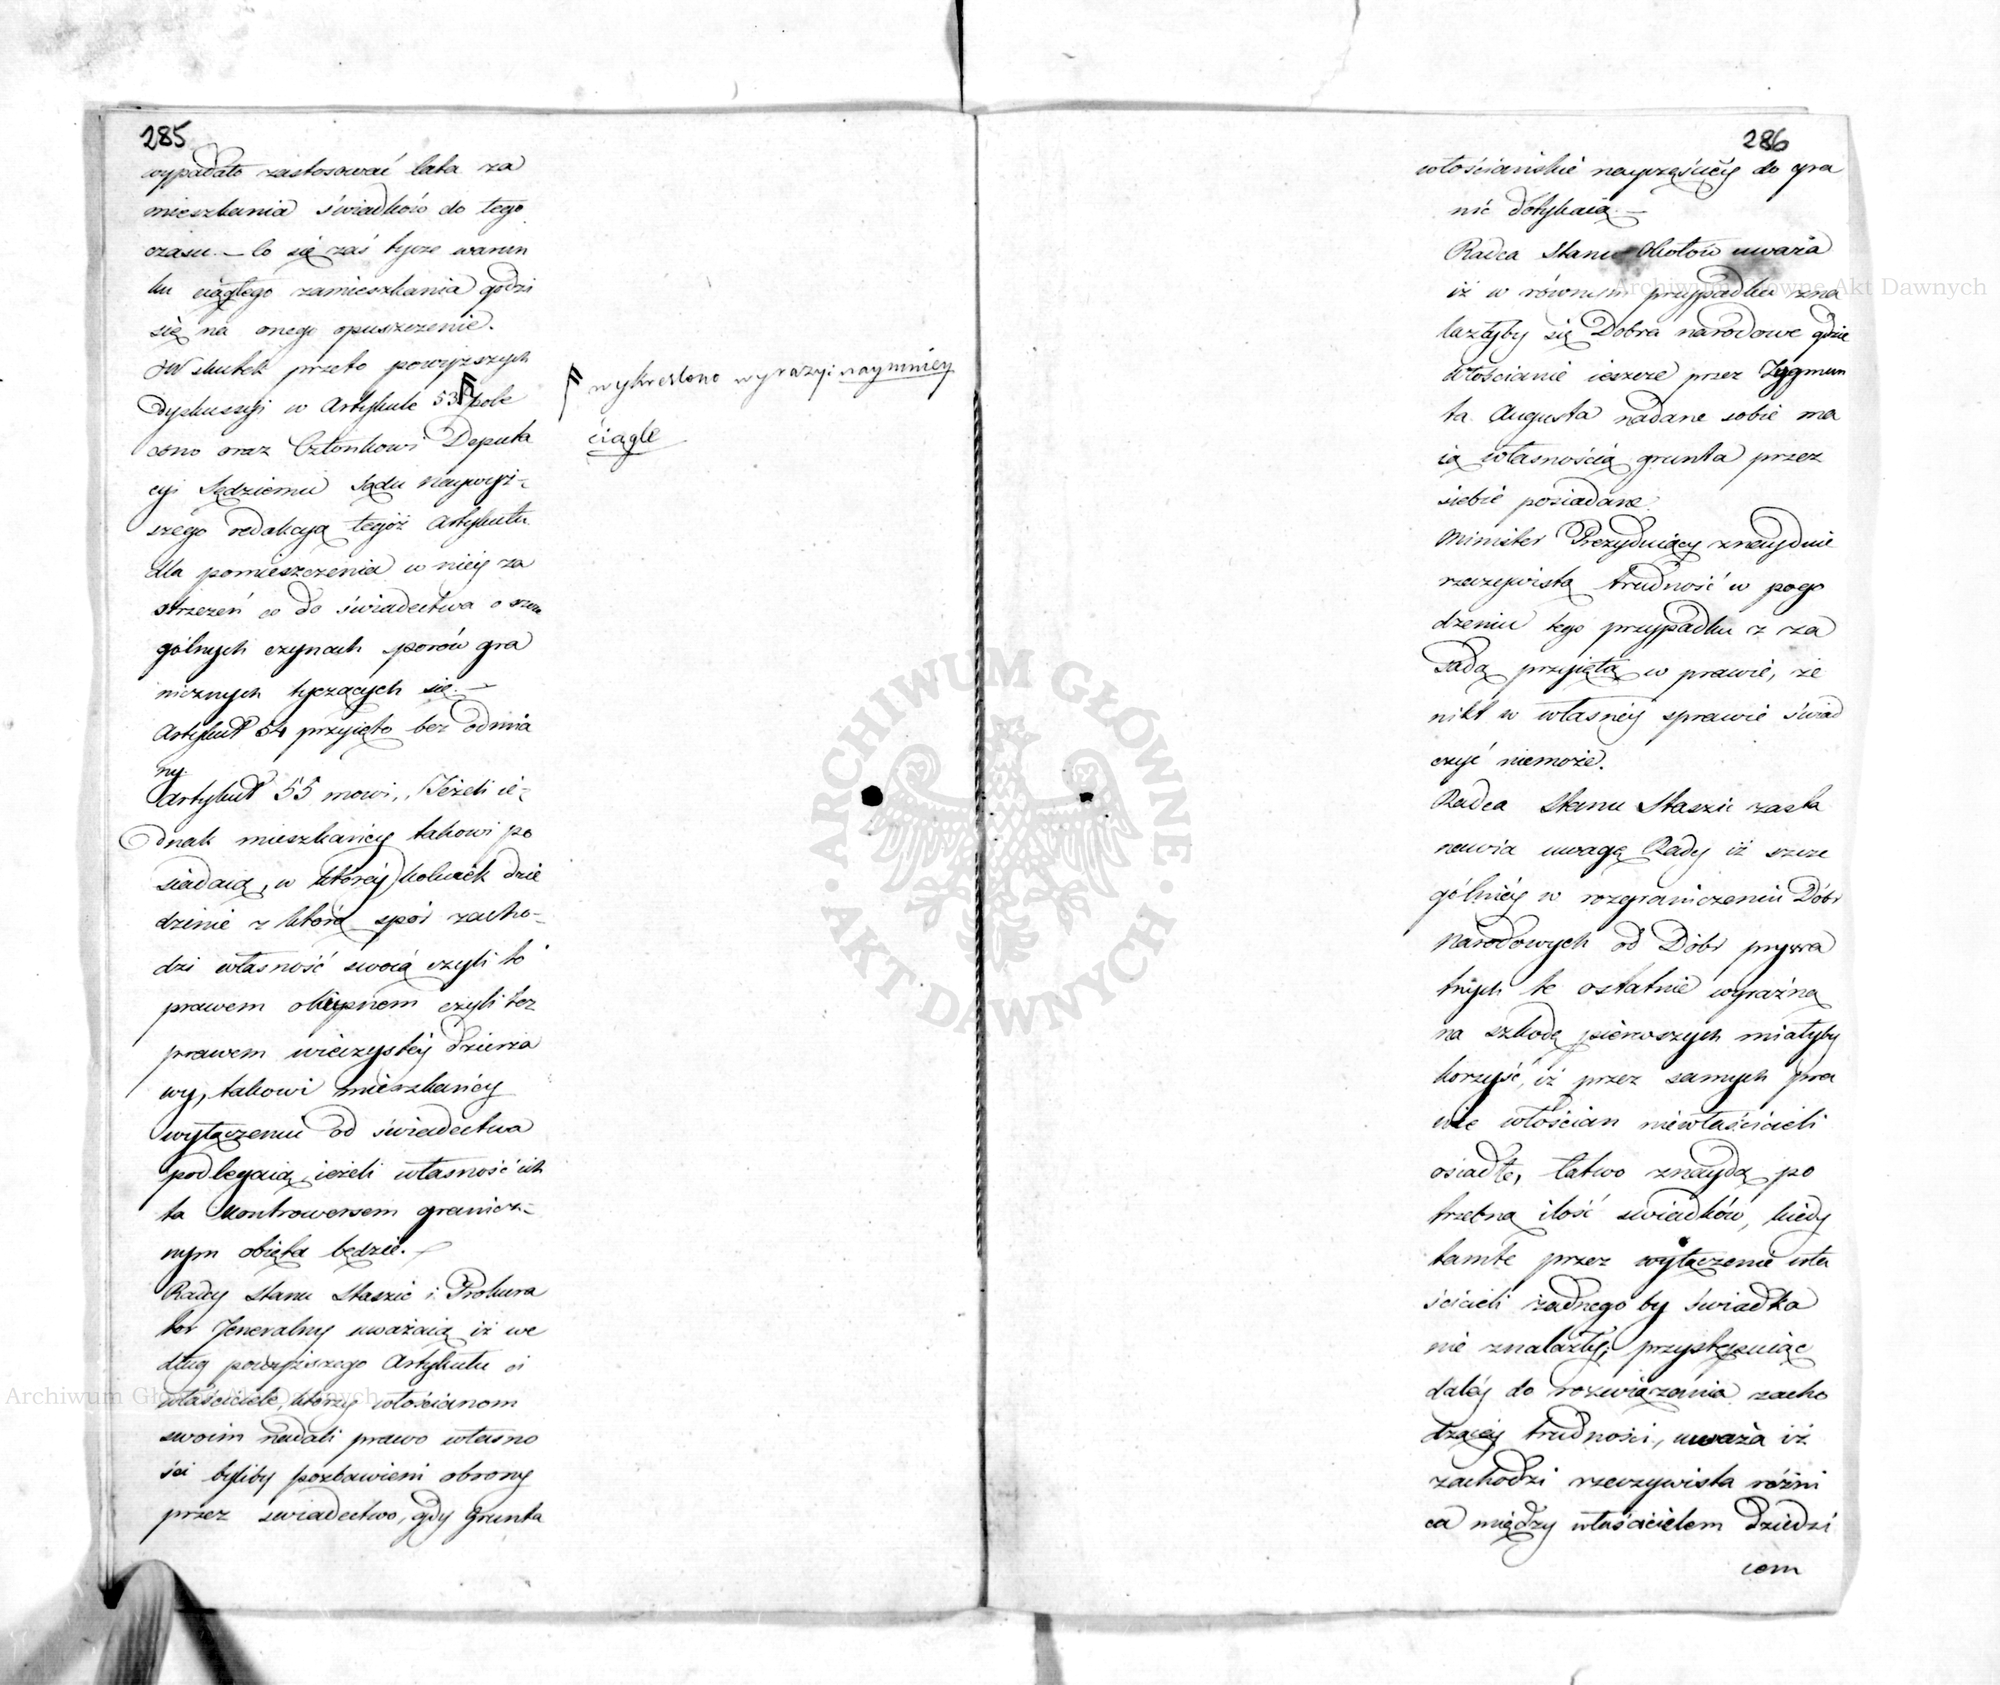 285
wypadało zastosować lata za
mieszkania świadków do tego
czasu. — Co się zaś tycze warun
ku ciągłego zamieszkania godzi
się na onego opuszczenie.
W skutek przeto powyższych
dyskussyi w Artykule 53 pole
cono oraz Członkowi Deputa
cyi Sędziemu Sądu Naywyż-
szego redakcyą tegoż Artykułu
dla pomieszczenia w niéy za
strzeżeń co do świadectwa o szcze
gólnych czynach sporów gra
nicznych tyczących się. —
Artykuł 54 przyięto bez odmia
ny
Artykuł 55 mowi „Jeżeli ie-
dnak mieszkańcy takowi po
siadaią, w któréy kolwiek dzie
dzinie z którą spór zacho-
dzi własność swoią czyli to
prawem czyli też
prawem wieczystéy dzierża
wy, takowi mieszkańcy
wyłączeniu od świadectwa
podlegaią, ieżeli własność ich
ta kontrowersem granicz-
nym obięta będzie.
Radcy Stanu Staszic i Prokura
tor Jeneralny uważaią iż we
dług powyższego Artykułu ci
właściciele, którzy włościanom
swoim nadali prawo własno
ści byliby pozbawieni obrony
przez świadectwo, gdy grunta
wykreślono wyrazy: naymniey
ciągle
286
włościańskie nayczęściéy do gra
nic dotykaią. —
Radca Stanu Okołow uważa
iż w równym przypadku zna
lazłyby się Dobra narodowe gdzie
włościanie ieszcze przez Zygmun
ta Augusta nadane sobie ma
ią własnością grunta przez
siebie posiadane.
Minister Prezyduiący znayduie
rzeczywistą trudność w pogo
dzeniu tego przypadku z za
sadą przyiętą w prawie, że
nikt w własnéy sprawie świad
czyć niemoże.
Radca Stanu Staszic zasta
nawia uwagę Rady iż szcze
gólniéy w rozgraniczeniu Dóbr
Narodowych od Dóbr prywa
tnych te ostatnie wyraźną
na szkodę pierwszych miałyby
korzyść, iż przez samych pra
wie włościan niewłaścicieli
osiadłe, łatwo znaydą po
trzebną ilość świadków, kiedy
tamte przez wyłączenie wła
ścicieli żadnego by świadka
nie znalazły; przystępuiąc
daléy do rozwiązania zacho
dzącéy trudności, uważa iż
zachodzi rzeczywista różni
ca między właścicielem dziedzi
cem
ARCHIWUM GŁÓWNE
AKT DAWNYCH
Archiwum Główne Akt Dawnych
Archiwum Główne Akt Dawnych